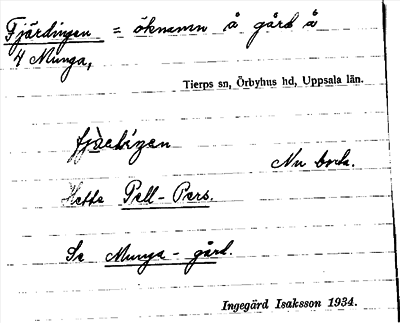 Fjärdingen = öknamn å gård å
4 Munga,
Tierps sn, Örbyhus hd, Uppsala län.
Nu borta.
Hette Pell-Pers.
Se Munga-gård.
Ingegärd Isaksson 1934.